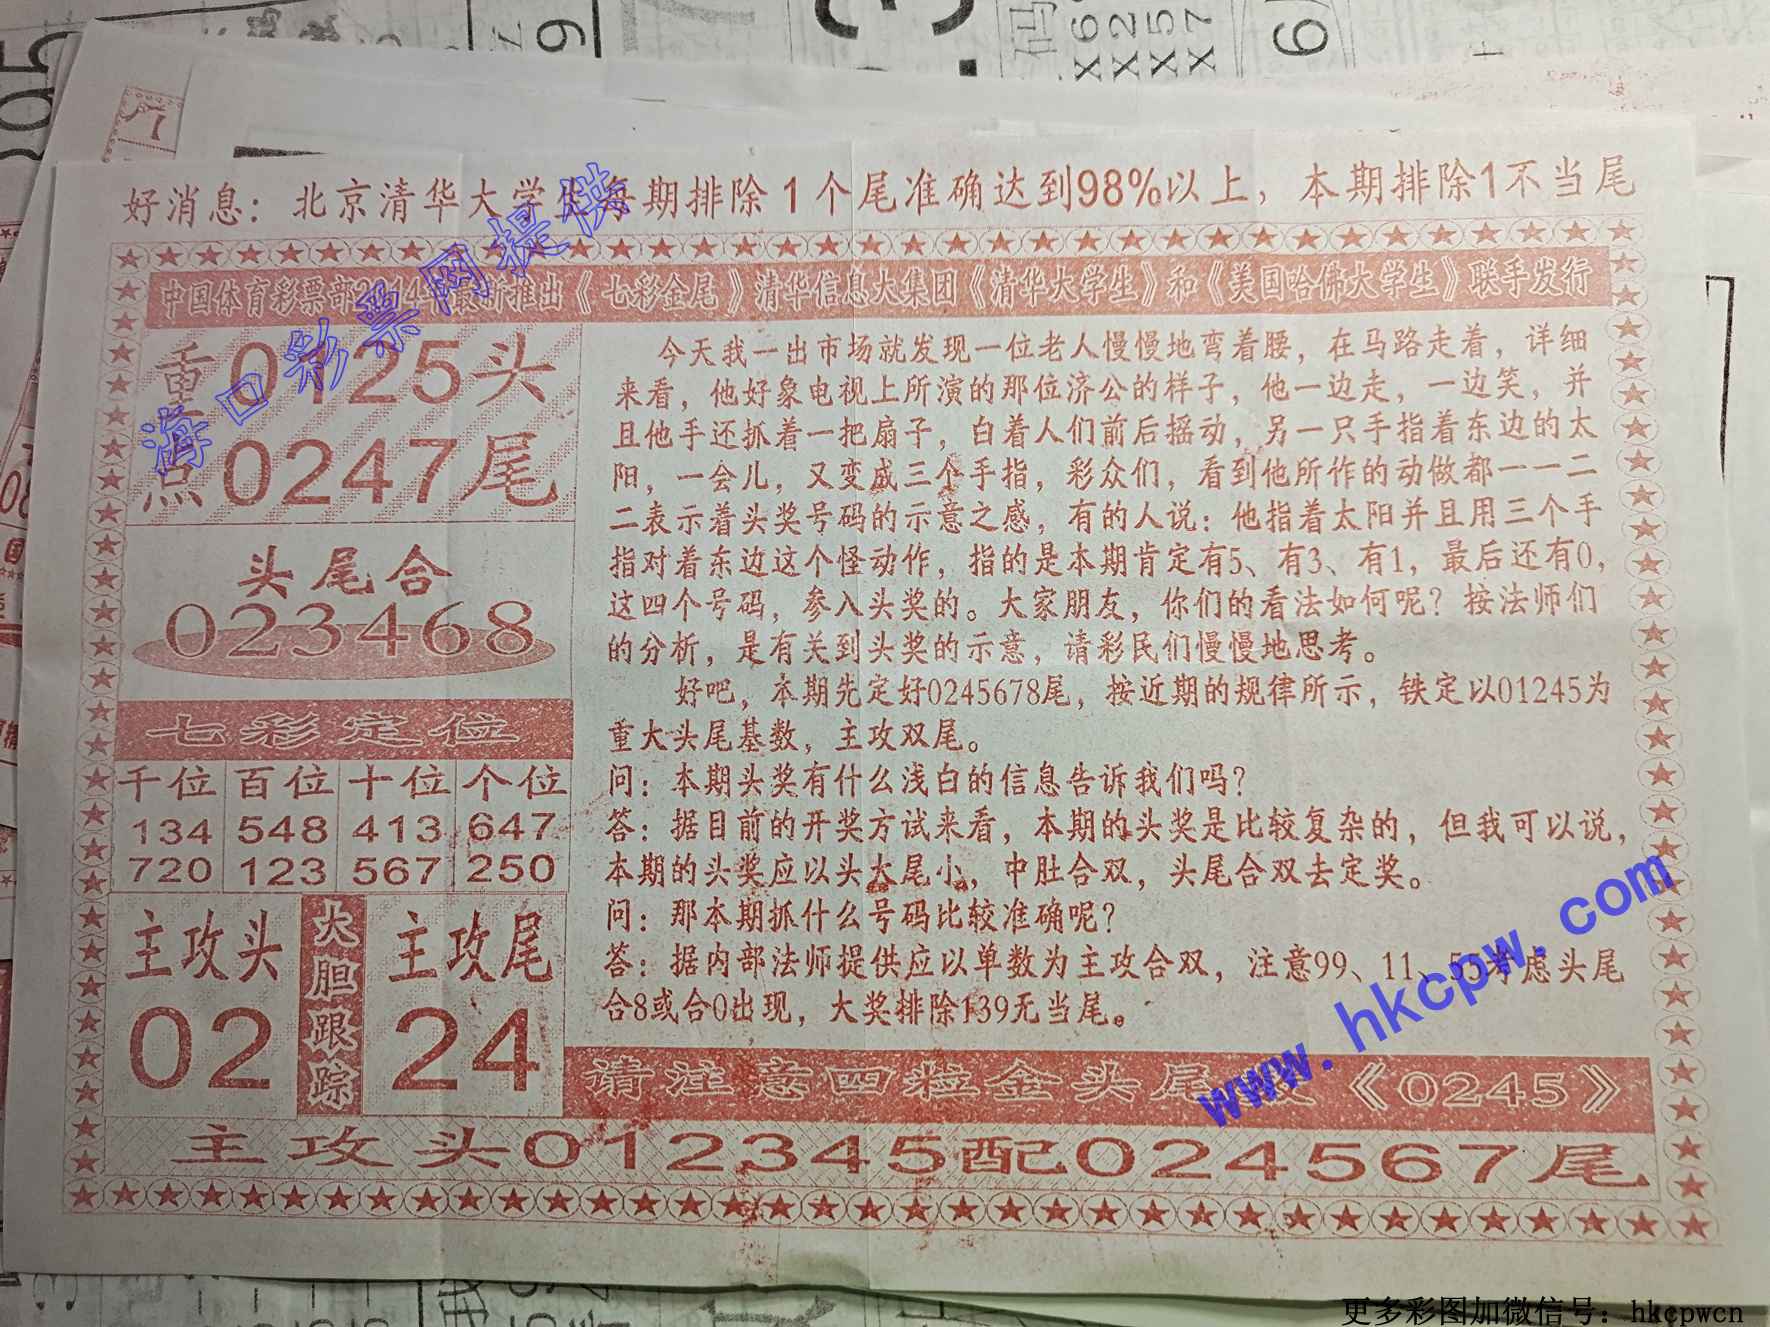 好消息：北京清华大学生每期排除1个尾准确达到98%以上，本期排除1不当尾
中国体育彩票部2014年最新推出《七彩金尾》清华信息大集团《清华大学生》和《美国哈佛大学生》联手发行
重0125头
点0247尾
头尾合
023468
七彩定位
千位 百位 十位 个位
134 548 413 647
720 123 567 250
主攻头
02
大胆跟踪
主攻尾
24
今天我一出市场就发现一位老人慢慢地弯着腰，在马路走着，详细
来看，他好象电视上所演的那位济公的样子，他一边走，一边笑，并
且他手还抓着一把扇子，白着人们前后摇动，另一只手指着东边的太
阳，一会儿，又变成三个手指，彩众们，看到他所作的动做都一一二
二表示着头奖号码的示意之感，有的人说：他指着太阳并且用三个手
指对着东边这个怪动作，指的是本期肯定有5、有3、有1，最后还有0，
这四个号码，参入头奖的。大家朋友，你们的看法如何呢？按法师们
的分析，是有关到头奖的示意，请彩民们慢慢地思考。
好吧，本期先定好0245678尾，按近期的规律所示，铁定以01245为
重大头尾基数，主攻双尾。
问：本期头奖有什么浅白的信息告诉我们吗？
答：据目前的开奖方试来看，本期的头奖是比较复杂的，但我可以说，
本期的头奖应以头大尾小，中肚合双，头尾合双去定奖。
问：那本期抓什么号码比较准确呢？
答：据内部法师提供应以单数为主攻合双，注意99、11、55考虑头尾
合8或合0出现，大奖排除139无当尾。
请注意四粒金头尾《0245》
主攻头012345配024567尾
海口彩票网提供
www.hkcpw.com
更多彩图加微信号：hkcpwcn